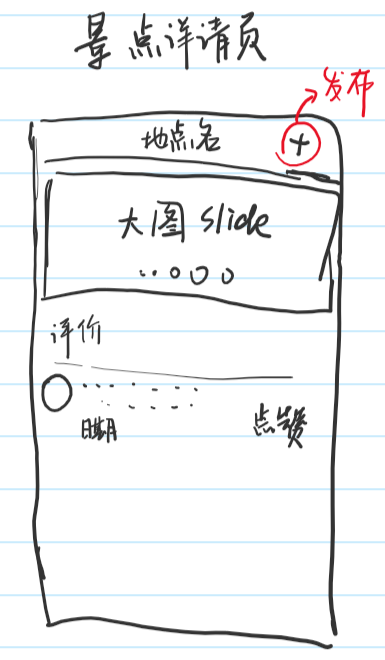 景点详请页
发布
地点名 +
大图 Slide
评价
日期 点赞